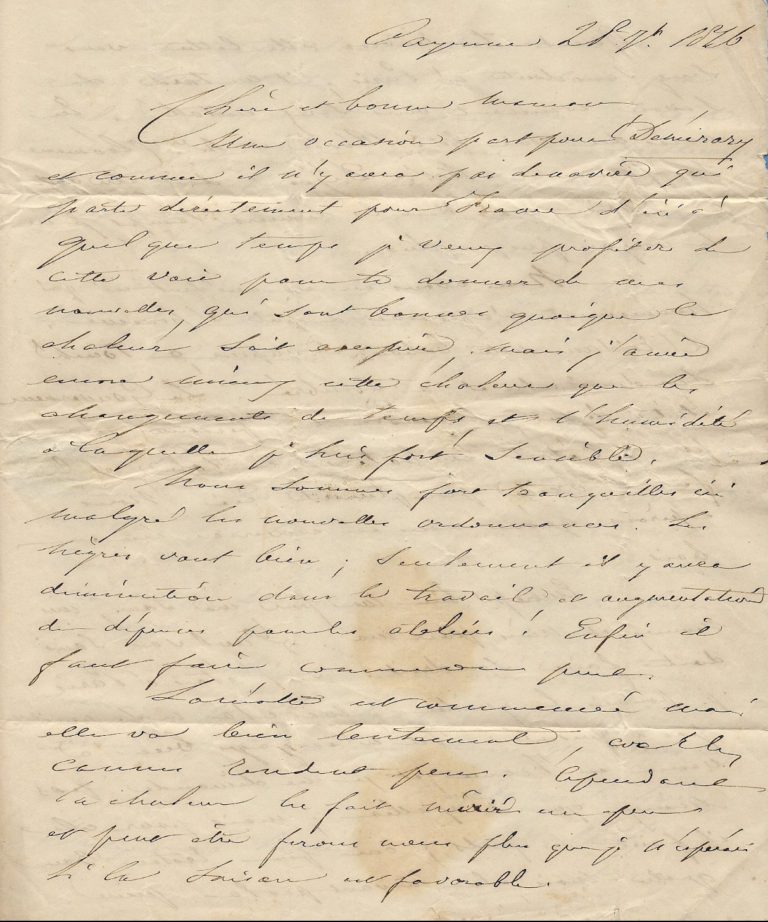 Cayenne 28 7bre 1846
Chère et bonne maman
Une occasion part pour Démérary
et comme il n'y aura pas de navire qui
parte directement pour France d'ici à
quelque temps je veux profiter de
cette voie pour te donner de mes
nouvelles, qui sont bonnes quoique la
chaleur soit excessive, mais j'aime
encore mieux cette chaleur que les
changements de temps et l'humidité
à laquelle je suis fort sensible.
Nous sommes fort tranquilles ici
malgré les nouvelles ordonnances. Les
nègres vont bien ; seulement il y aura
diminution dans le travail et augmentation
de dépenses pour les ateliers ! Enfin il
faut faire comme on peut.
La récolte est commencée mais
elle va bien lentement, car les
cannes rendent peu. Cependant
la chaleur les fait mûrir un peu
et peut être ferons nous plus que je n'espérais
si la saison est favorable.